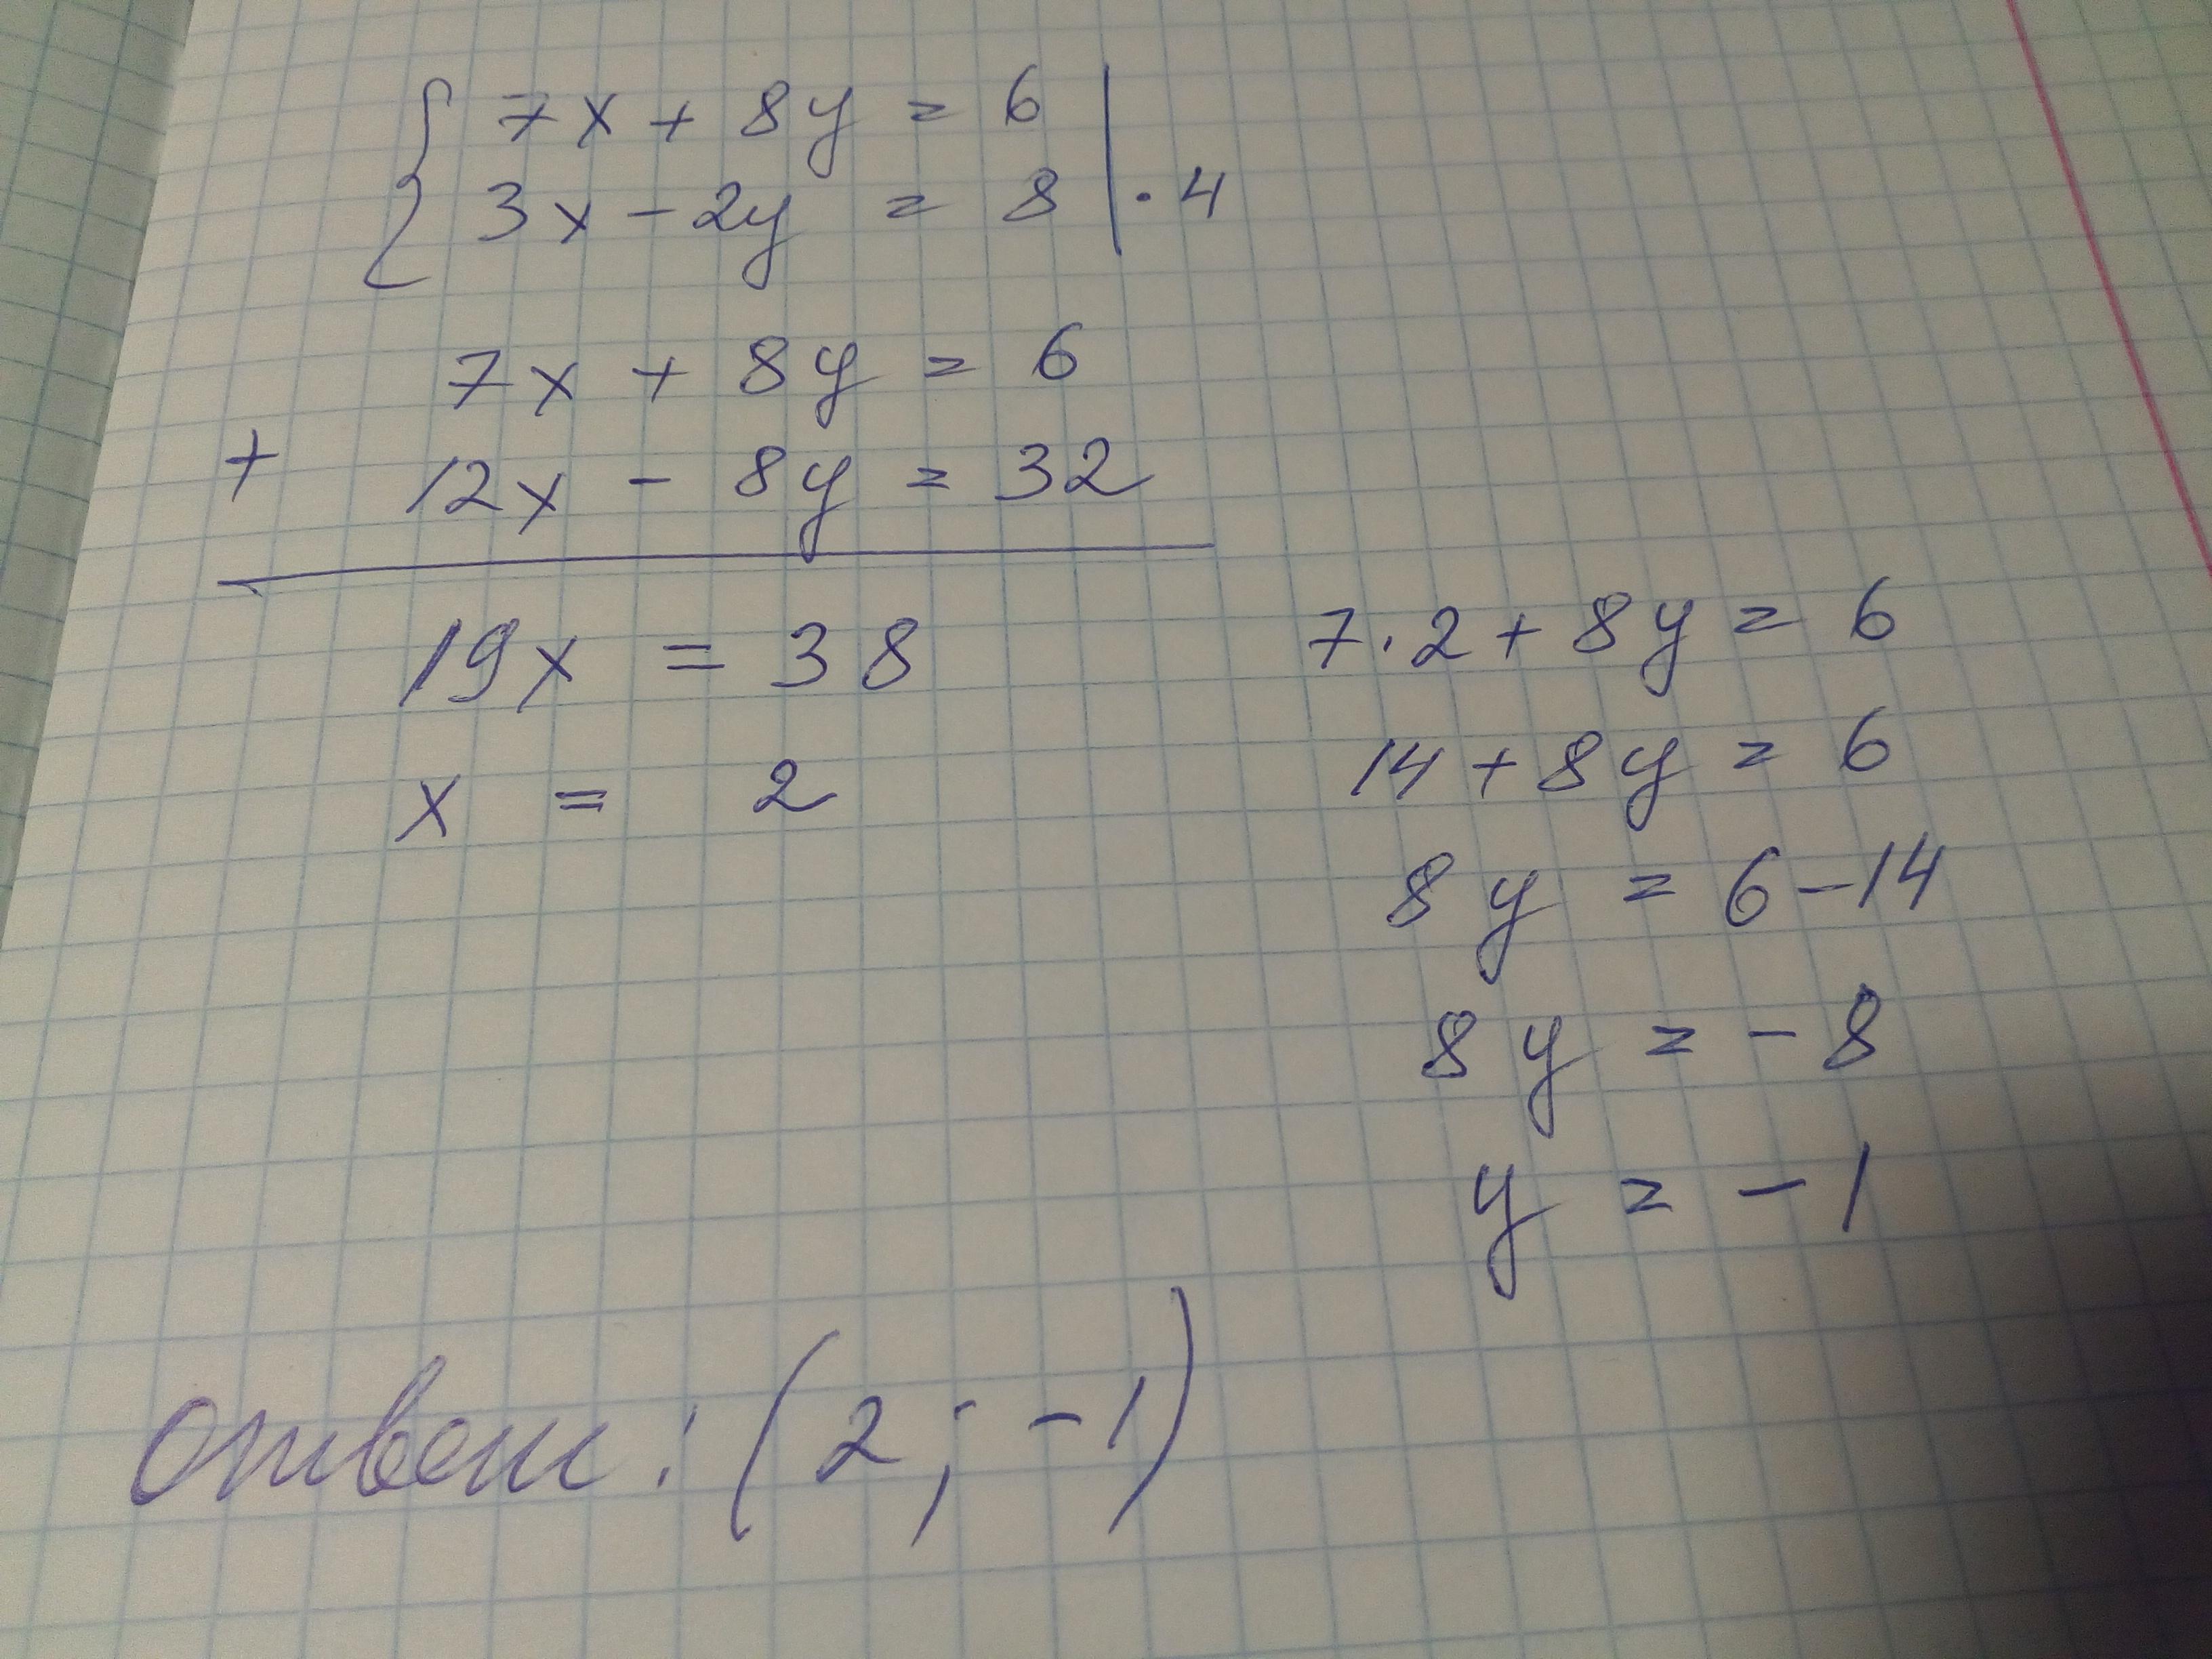 7x + 8y = 6
3x - 2y = 8 | · 4
7x + 8y = 6
+
12x - 8y = 32
19x = 38
x = 2
7 · 2 + 8y = 6
14 + 8y = 6
8y = 6 - 14
8y = - 8
y = - 1
ответ: (2 ; -1)